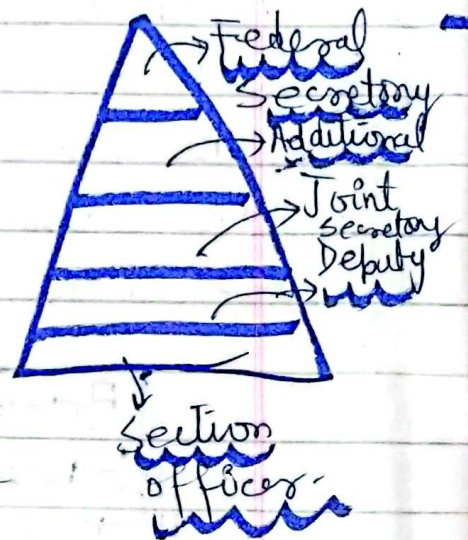 Federal
Secretory
Additional
Joint
Secretory
Deputy
Section
officer.